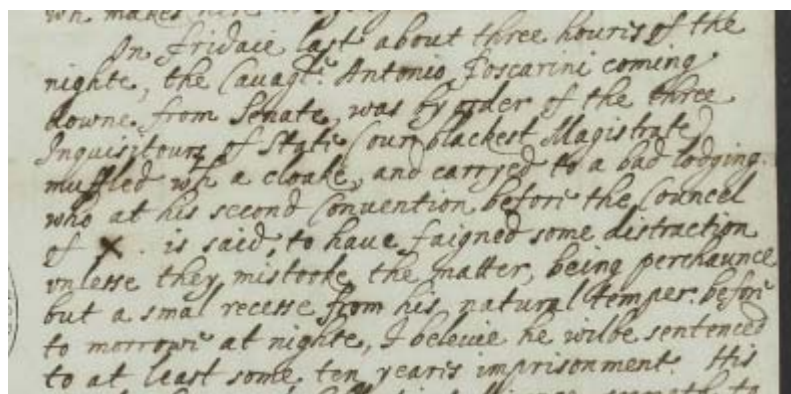 In Fridaie last about three houris of the
nighte, the Cavagl.r Antonio Foscarini coming
downe from Senate, was by order of the three
Inquisitours of State (our blackest Magistrate)
muffled wth a cloake, and carryed to a bad lodging.
who at his second Convention before the Councel
of X. is said, to have faigned some distraction
vnlesse they mistooke the matter, being perchaunce
but a smal recesse from his natural temper. before
to morrowe at nighte, I beleeue he wilbe sentenced
to at least some ten yeares imprisonment. His